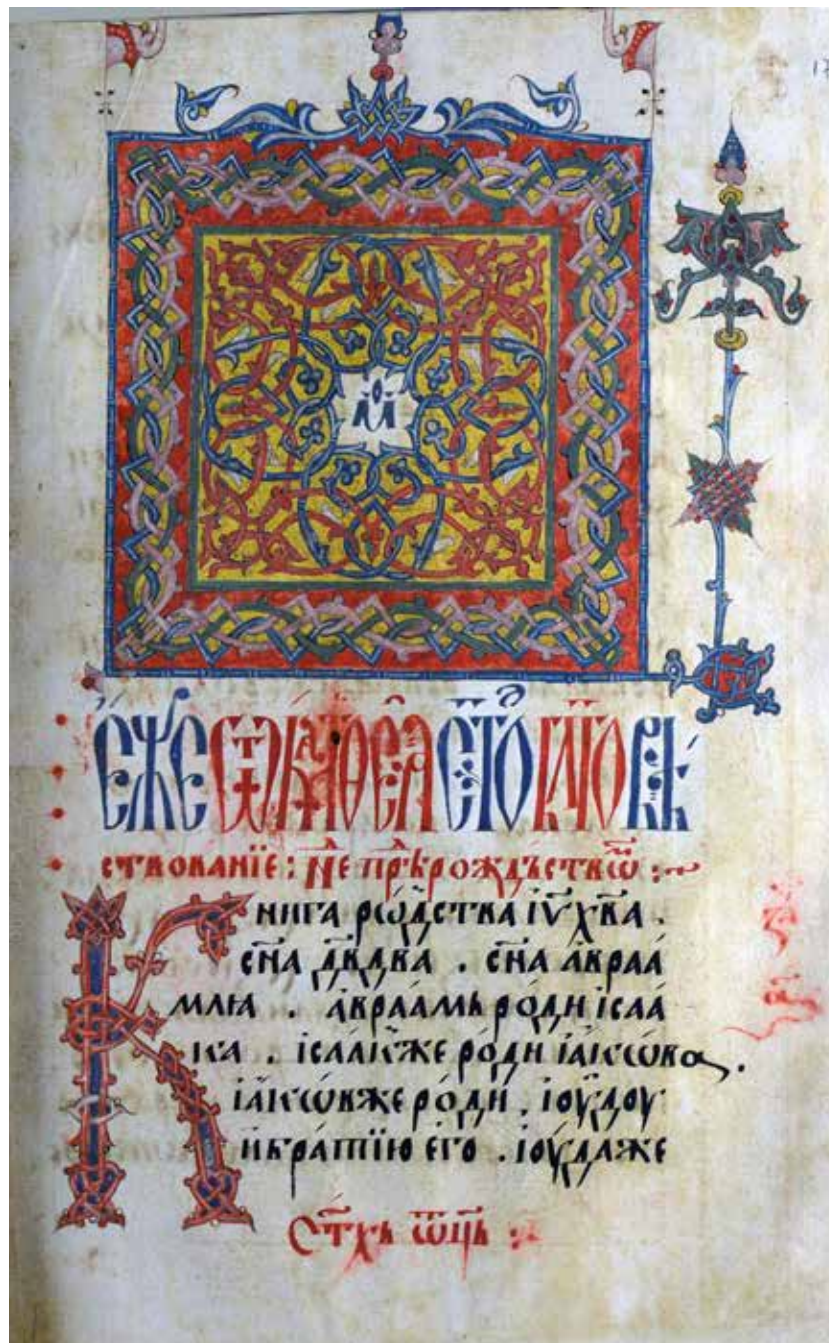 Е́ЖЕ Ѿ МАТѲЕА СТ҃Г҃О БЛ҃ГОВѢ
ствованїе : Нⷣе прⷣѣ рождьствѡⷨ :~
Книга рѡⷣства іѵ҃ х҃ва .
сн҃а дв҃два . сн҃а а҆враа́
млꙗ . а҆враа́мь ро́ди ісаа́
ка . ісаа́кже ро́ди іа́кѡва .
іа́кѡвже ро́ди . іоу́доу
и҆ бра́тїю е҆го . іоу́даже
ст҃хь ѿц҃ь :